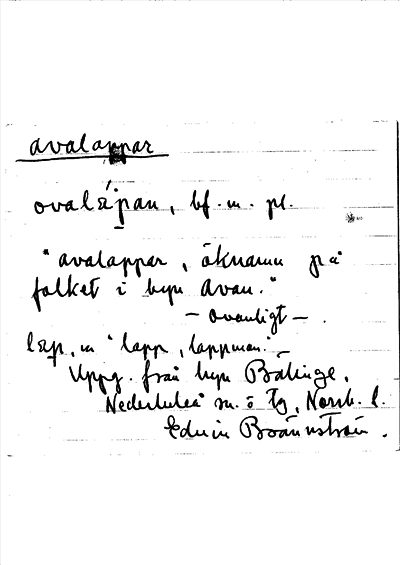 avalappar
ovalɛp̱an, bf. m. pl.
"avalappar, öknamn på
folket i byn Avan."
— ovanligt —.
lɛp̱, m "lapp, lappman".
Uppg. från byn Bälinge,
Nederluleå sn. o tg, Norrb. l.
Edvin Brännström.